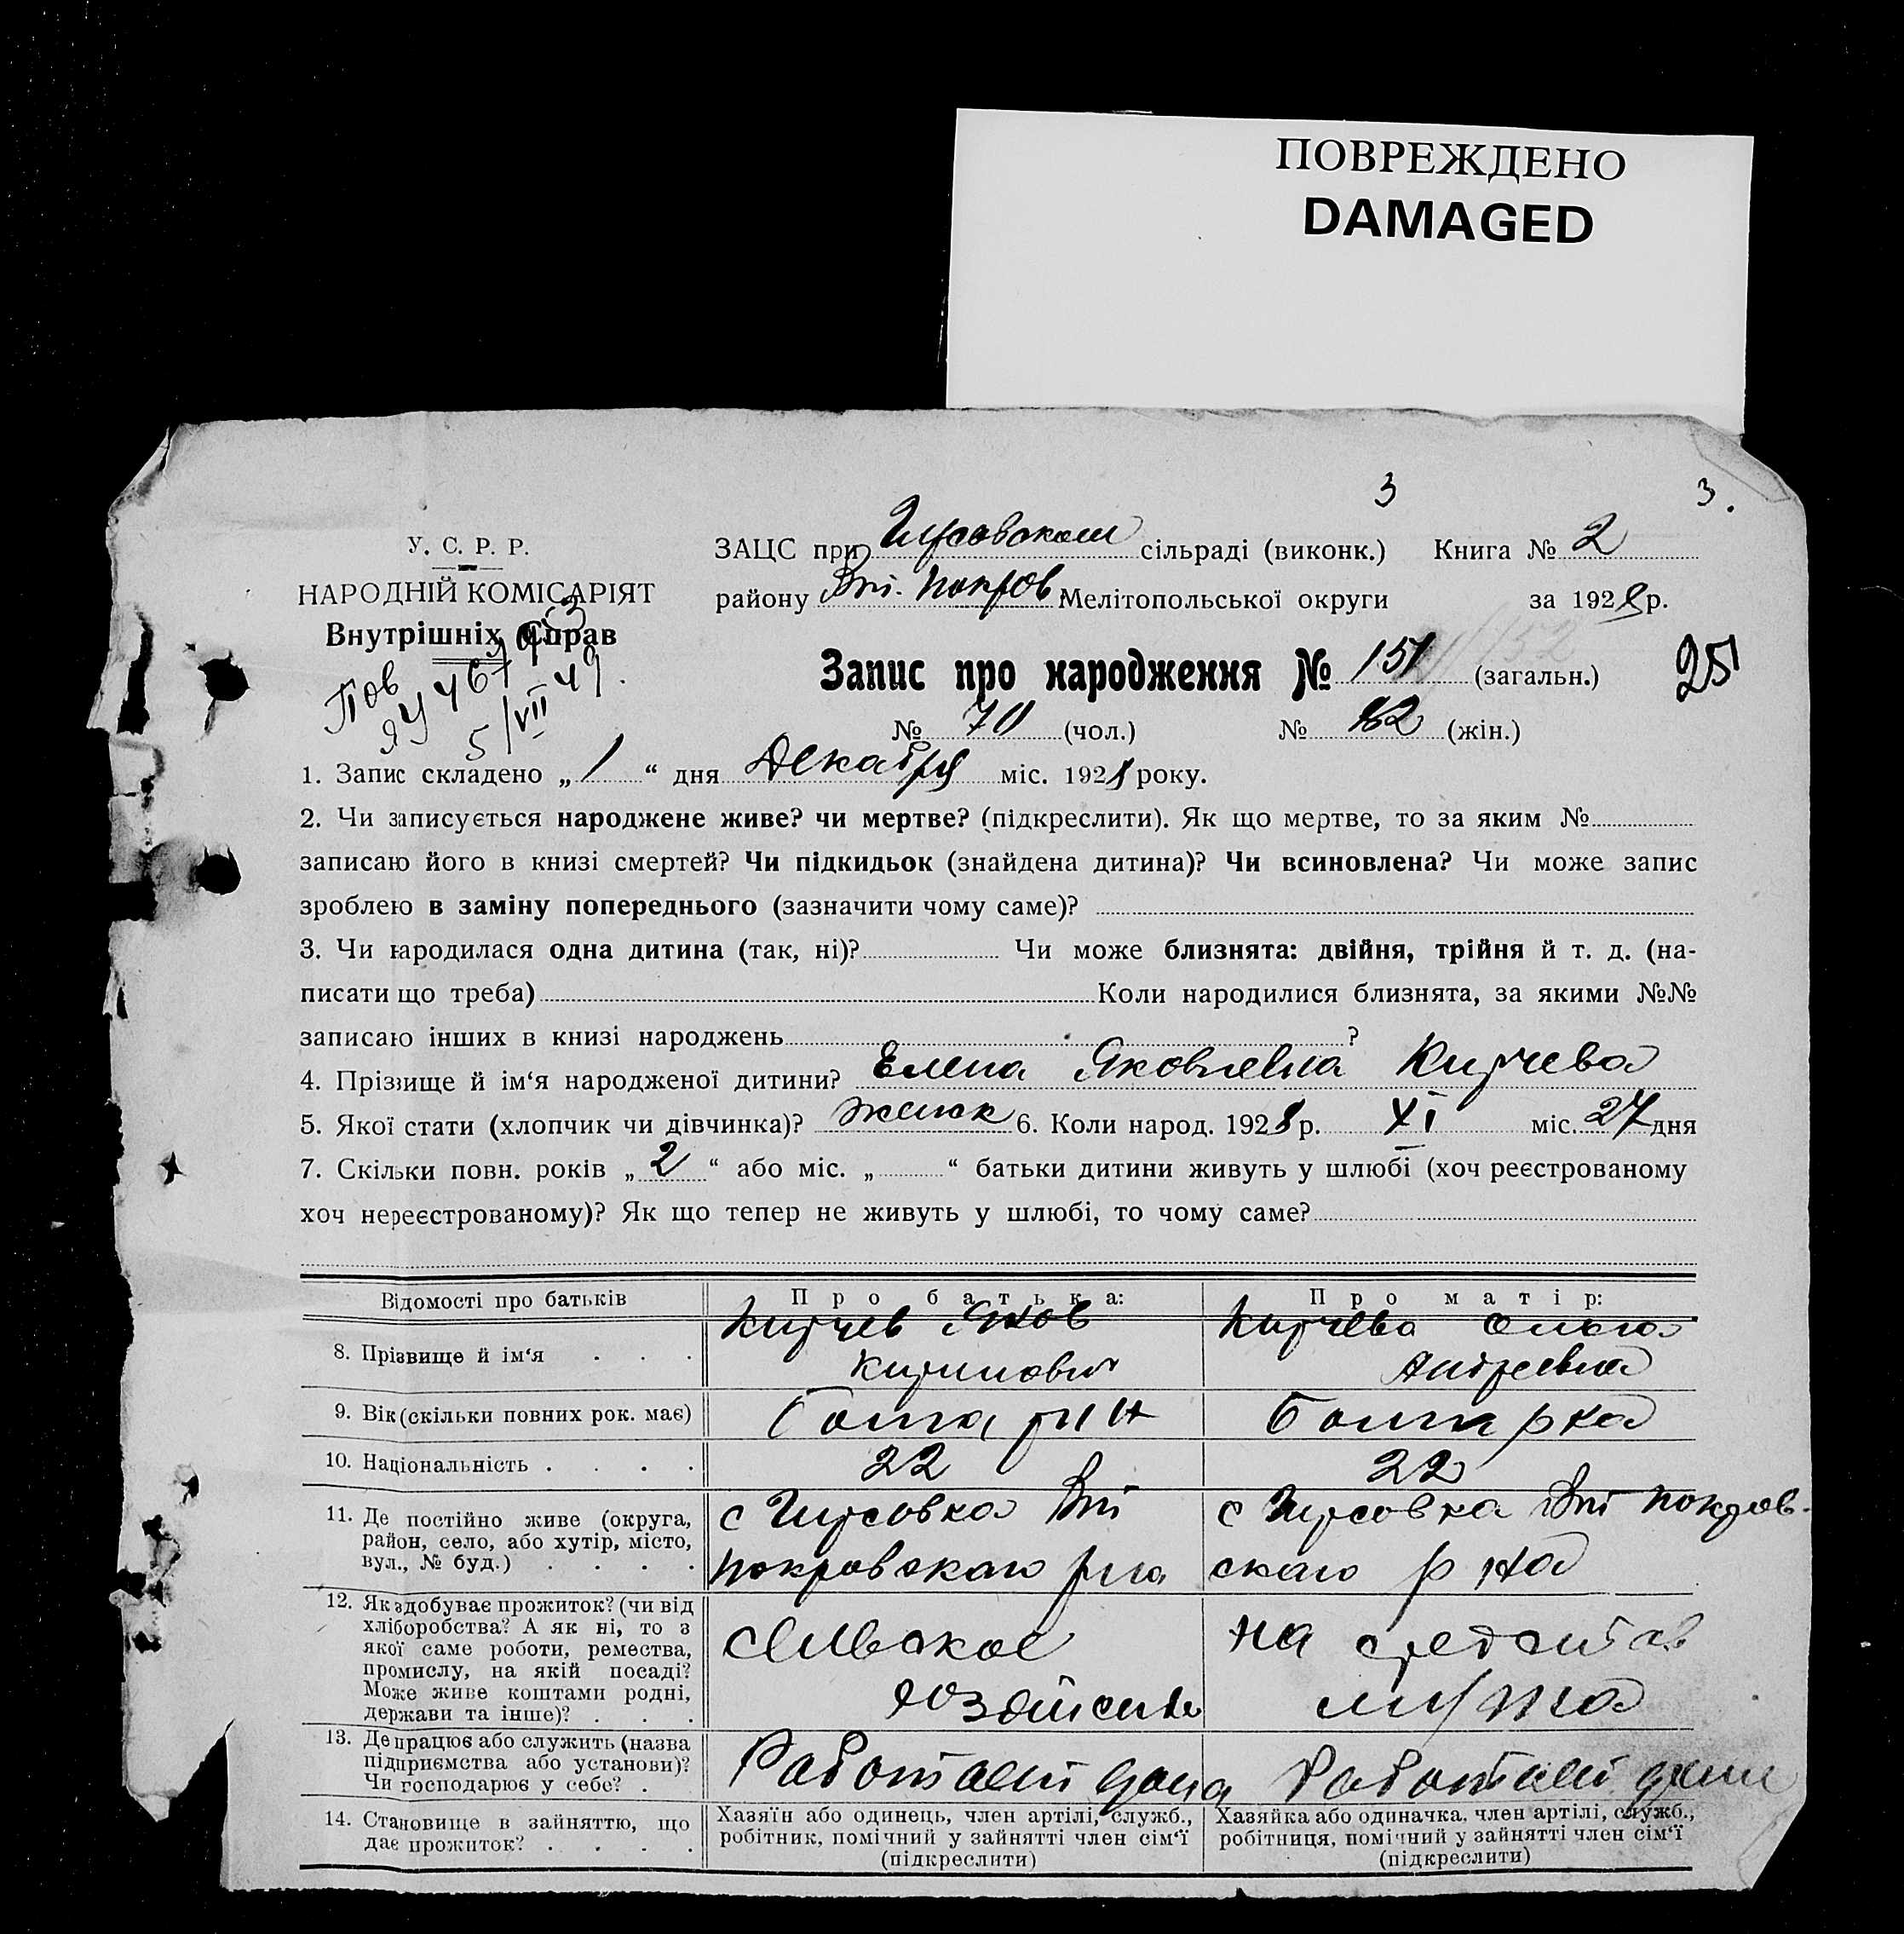 ПОВРЕЖДЕНО
DAMAGED
3 3.
У. С. Р. Р.
НАРОДНІЙ КОМІСАРІЯТ
Внутрішніх Справ
Пов
5/VII 49.
ЗАЦС при Гирсовском сільраді (виконк.) Книга № 2
району Вт. Покров Мелітопольської округи за 1928 р.
Запис про народження № 151 (загальн.) 25
№ 70 (чол.) № 82 (жін.)
1. Запис складено „ 1 “ дня Декабря міс. 1928 року.
2. Чи записується народжене живе? чи мертве? (підкреслити). Як що мертве, то за яким №
записаю його в книзі смертей? Чи підкидьок (знайдена дитина)? Чи всиновлена? Чи може запис
зроблею в заміну попереднього (зазначити чому саме)?
3. Чи народилася одна дитина (так, ні)? Чи може близнята: двійня, трійня й т. д. (на-
писати що треба) Коли народилися близнята, за якими №№
записаю інших в книзі народжень ?
4. Прізвище й ім‘я народженої дитини? Елена Яковлевна Кирчева
5. Якої стати (хлопчик чи дівчинка)? женск 6. Коли народ. 1928 р. XI міс. 27 дня
7. Скільки повн. років „ 2 “ або міс. „ “ батьки дитини живуть у шлюбі (хоч реєстрованому
хоч нереєстрованому)? Як що тепер не живуть у шлюбі, то чому саме?
Відомості про батьків Про батька: Про матір:
8. Прізвище й ім‘я . . . Кирчев Яков Кирчева Ольга
Андреевна
9. Вік (скільки повних рок. має) Болгарин Болгарка
10. Національність . . . . 22 22
11. Де постійно живе (округа, район, село, або хутір, місто, вул., № буд.) . . . .
с Гирсовка Вт
Покровскаго рна
с Гирсовка Вт Покров-
скаго р на
12. Як здобуває прожиток? (чи від
хліборобства? А як ні, то з
якої саме роботи, ремества,
промислу, на якій посаді?
Може живе коштами родні,
держави та інше)? . . .
сельское
хозяйство
на средства
мужа
13. Де працює або служить (назва
підприємства або установи)?
Чи господарює у себе? .
Работает дома
Работает дома
14. Становище в зайняттю, що
дає прожиток? . . . .
Хазяїн або одинець, член артілі, служб.,
робітник, помічний у зайнятті член сім‘ї
(підкреслити)
Хазяйка або одиначка, член артілі, служб.,
робітниця, помічний у зайнятті член сім‘ї
(підкреслити)